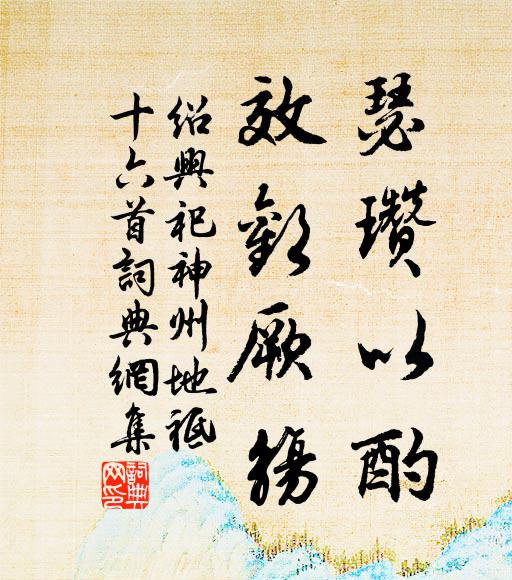 瑟瓚以酌
效歡厥觴
紹興祀神州地祇
十六首詞典網集
詞典網印